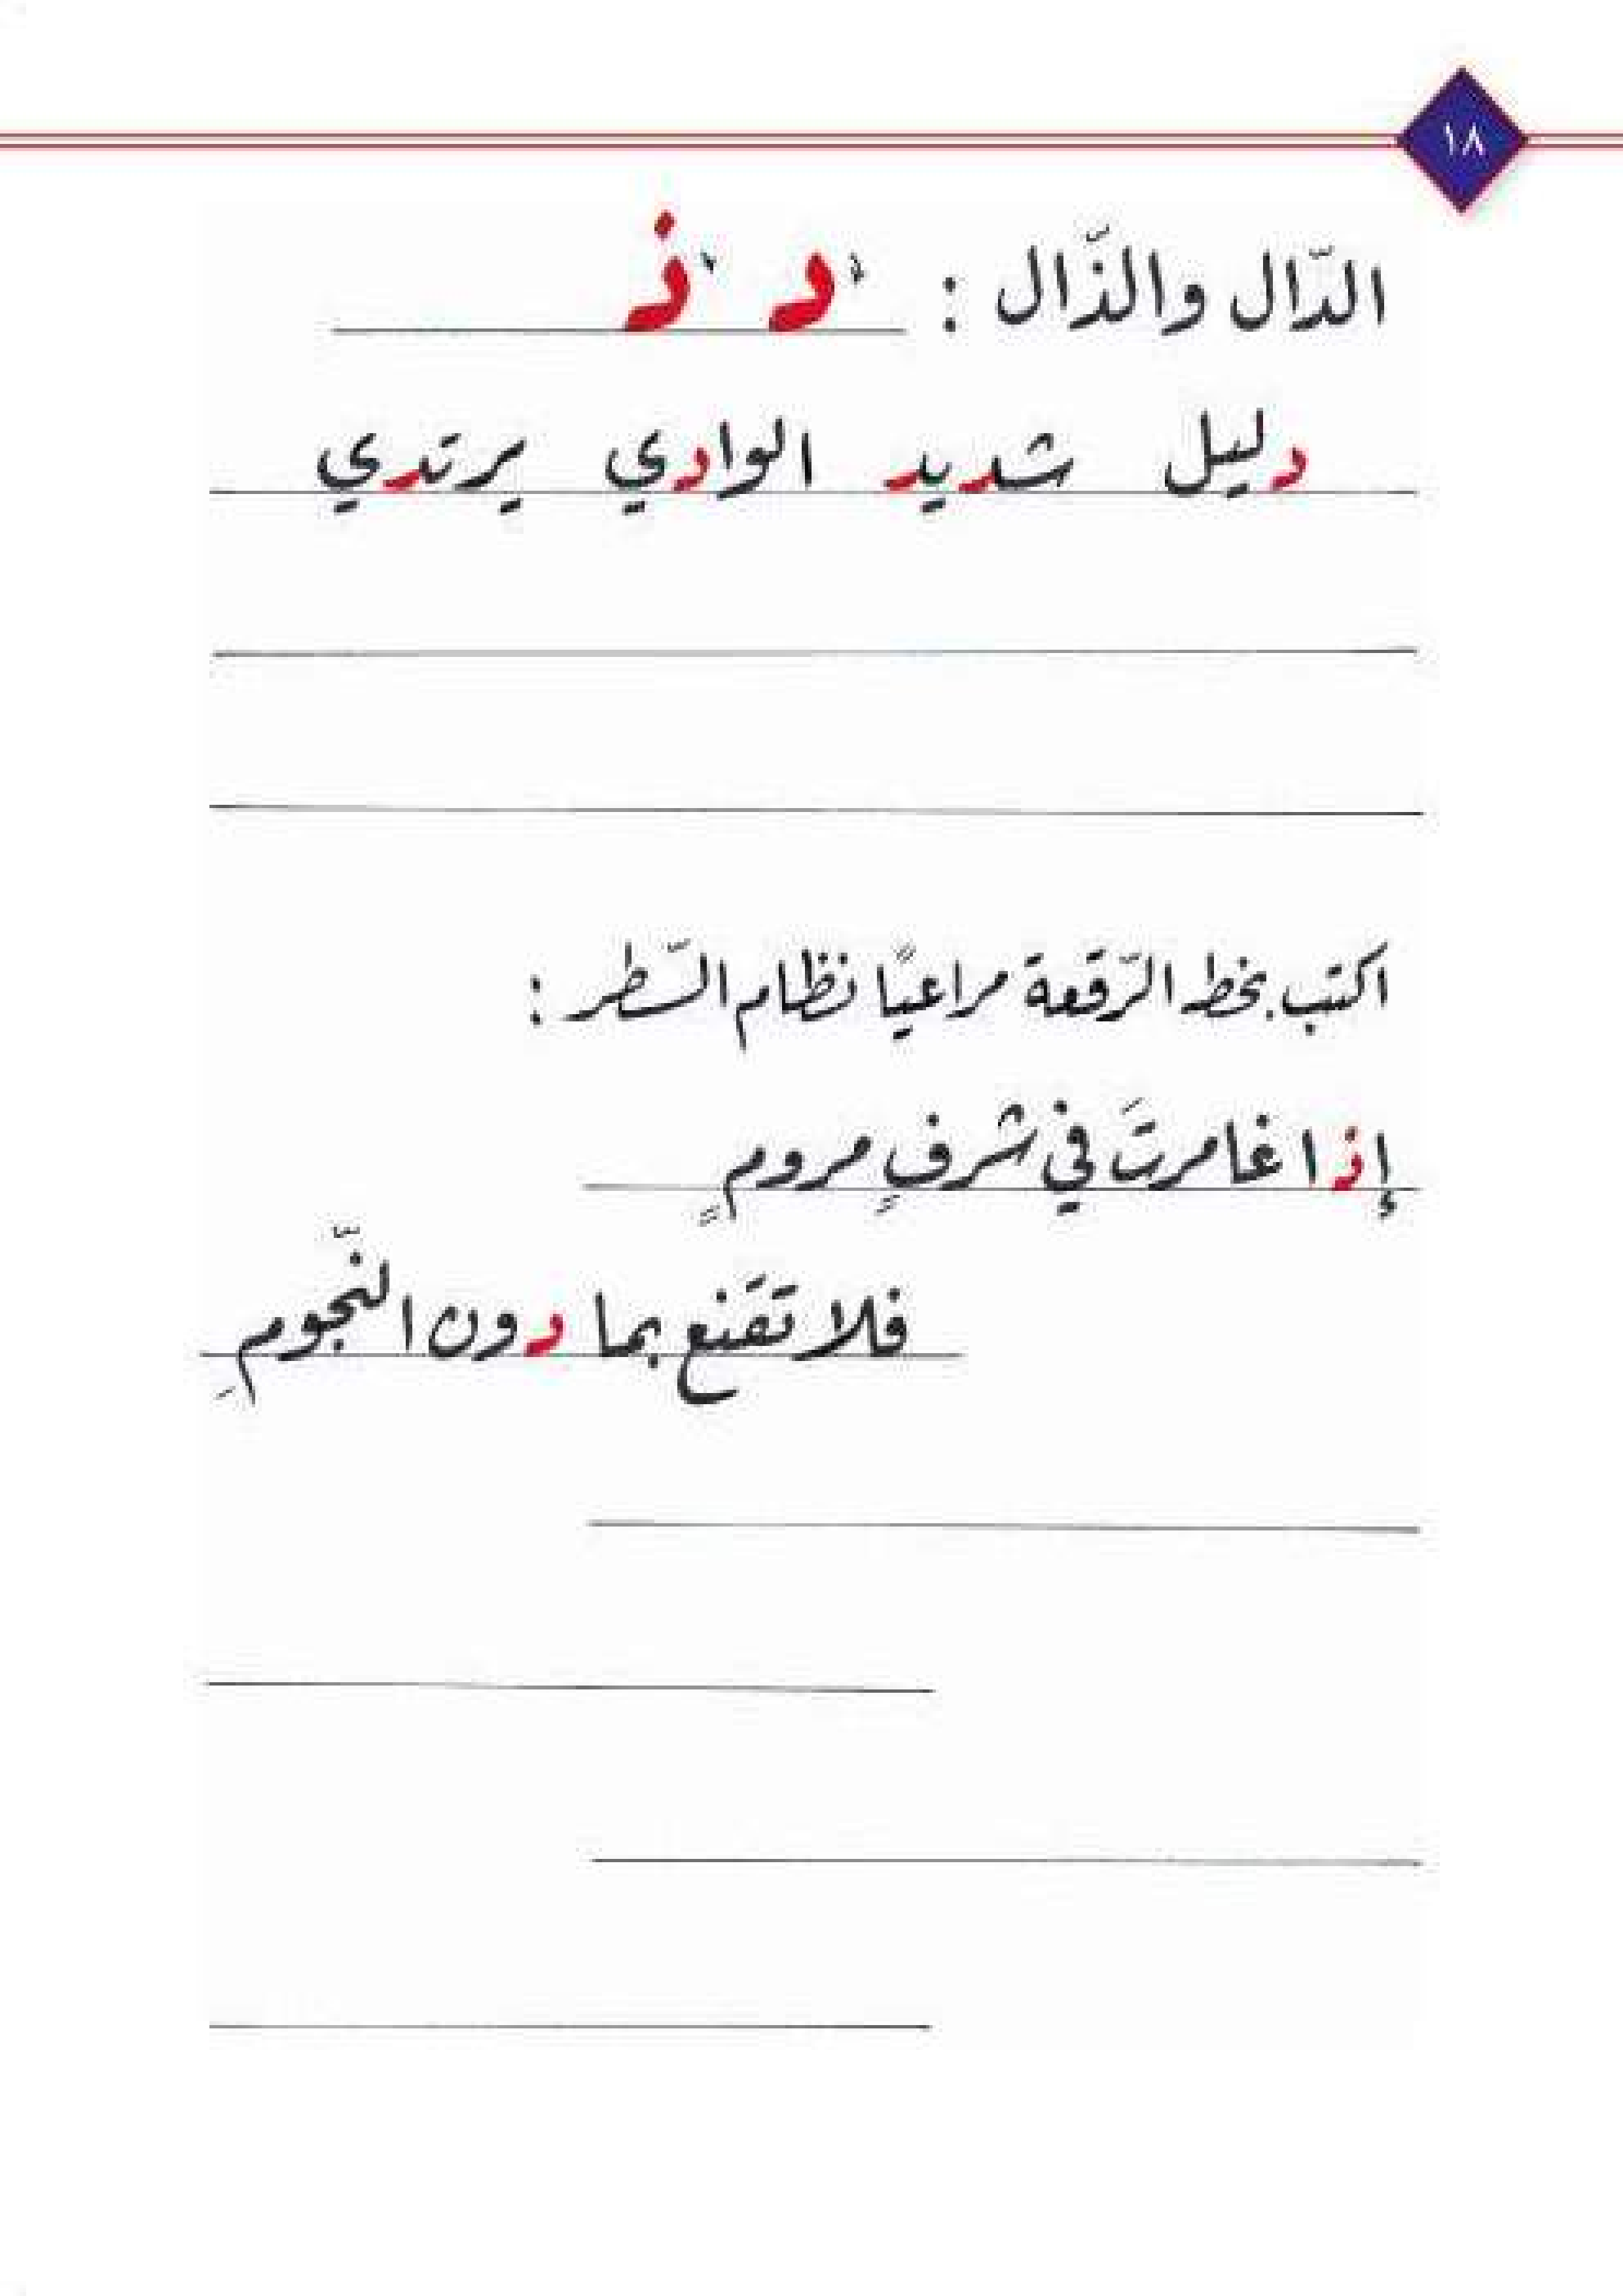 ١٨
الدّال والذّال : د ذ
دليل شديد الوادي يرتدي
اكتب بخط الرّقعة مراعيًا نظام السّطر :
إذا غامرتَ في شرفٍ مرومٍ
فلا تقنَع بما دون النّجومِ